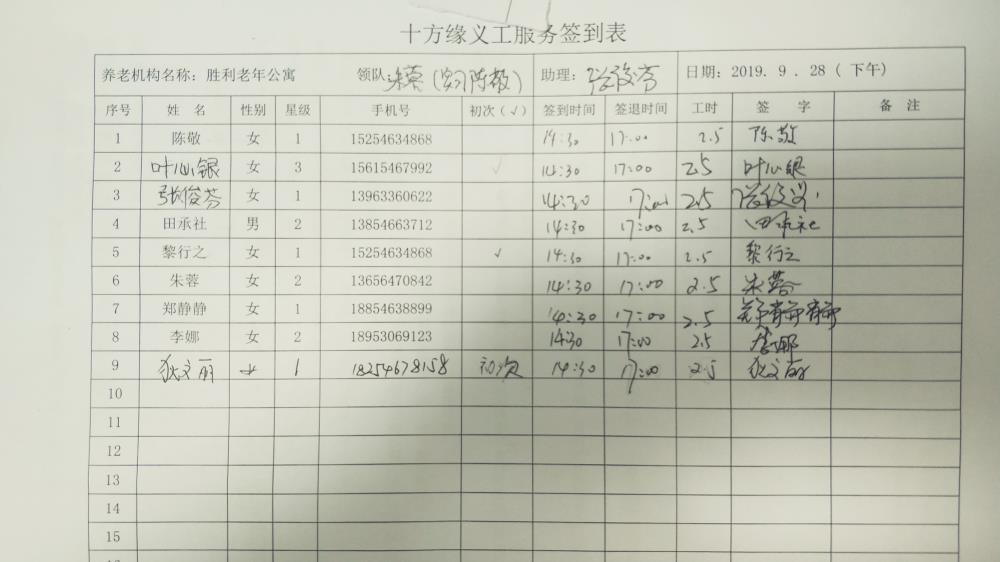 十方缘义工服务签到表
养老机构名称：胜利老年公寓 领队 朱蓉（实习陈敬） 助理： 张俊芬 日期：2019．9．28（下午）
序号 姓 名 性别 星级 手机号 初次（√） 签到时间 签退时间 工时 签 字 备 注
1 陈敬 女 1 15254634868 14:30 17:00 2.5 陈敬
2 叶心银 女 3 15615467992 √ 14:30 17:00 2.5 叶心银
3 张俊芬 女 1 13963360622 14:30 17:00 2.5 张俊芬
4 田承社 男 2 13854663712 14:30 17:00 2.5 田承社
5 黎行之 女 1 15254634868 √ 14:30 17:00 2.5 黎行之
6 朱蓉 女 2 13656470842 14:30 17:00 2.5 朱蓉
7 郑静静 女 1 18854638899 14:30 17:00 2.5 郑静静
8 李娜 女 2 18953069123 14:30 17:00 2.5 李娜
9 狄文丽 女 1 18254678158 初次 14:30 17:00 2.5 狄文丽
10
11
12
13
14
15